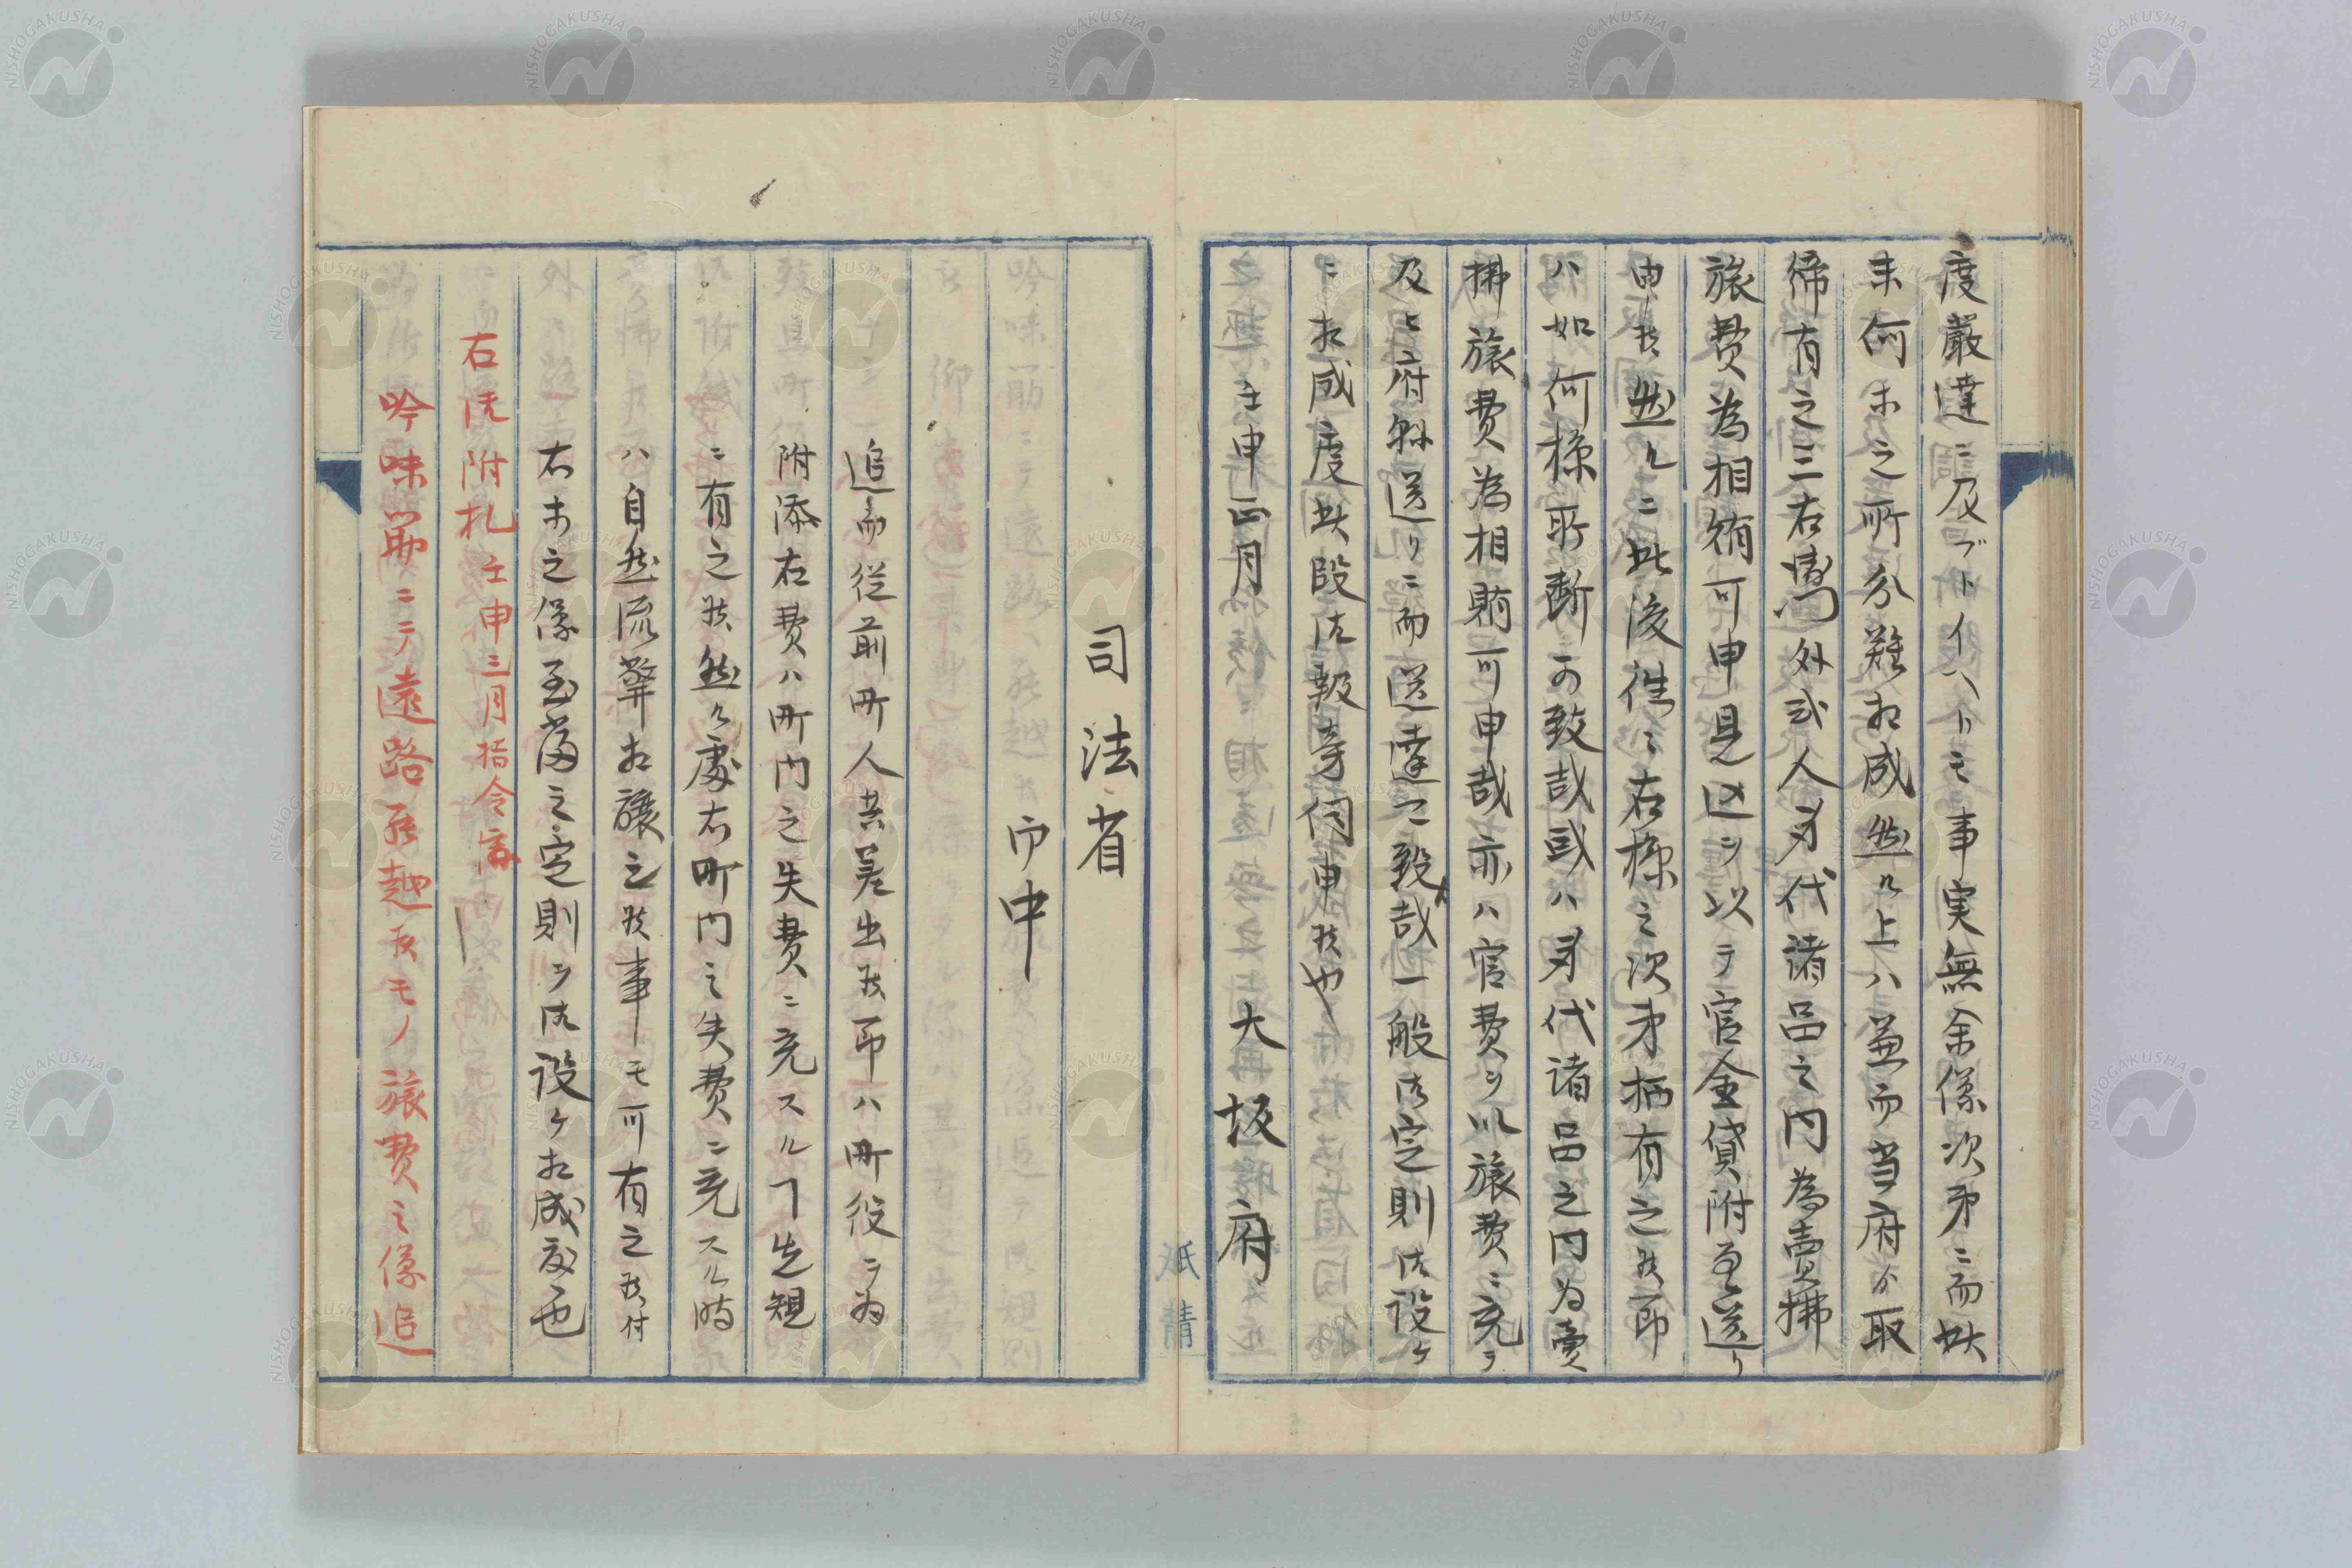 度嚴達ニ及ブトイヘトモ事実無余儀次第ニ而此
末何ホ之所分難相成然ル上ハ兼而当府ゟ取
締有之三右衛門外弐人身代諸品之内為賣拂
旅費為相賄可申見込ヲ以テ官金貸附為送り
申候然ルニ此後往々右様之次第柄有之候節
ハ如何様所断可致哉或ハ身代諸品之内為賣
拂旅費為相賄可申哉亦ハ官費ヲ以旅費ニ充ラ
及ヒ府縣送リニ而送達可致哉一般御定則御設ケ
ニ相成度此段御報旁伺申候也
壬申正月 大坂府
司法省
御中
追而従前町人共差出候節ハ町役ヲ為
附添右費ハ町内之失費ニ充スルヿ先規
ニ有之候然ル處右町内之失費ニ充スル時
ハ自然流弊相醸之候事トモ可有之候付
右ホ之儀至当之定則ヲ御設ケ相成度也
右御附札壬申三月指令済
吟味筋ニテ遠路罷越候モノ旅費之儀追
NISHOGAKUSHA